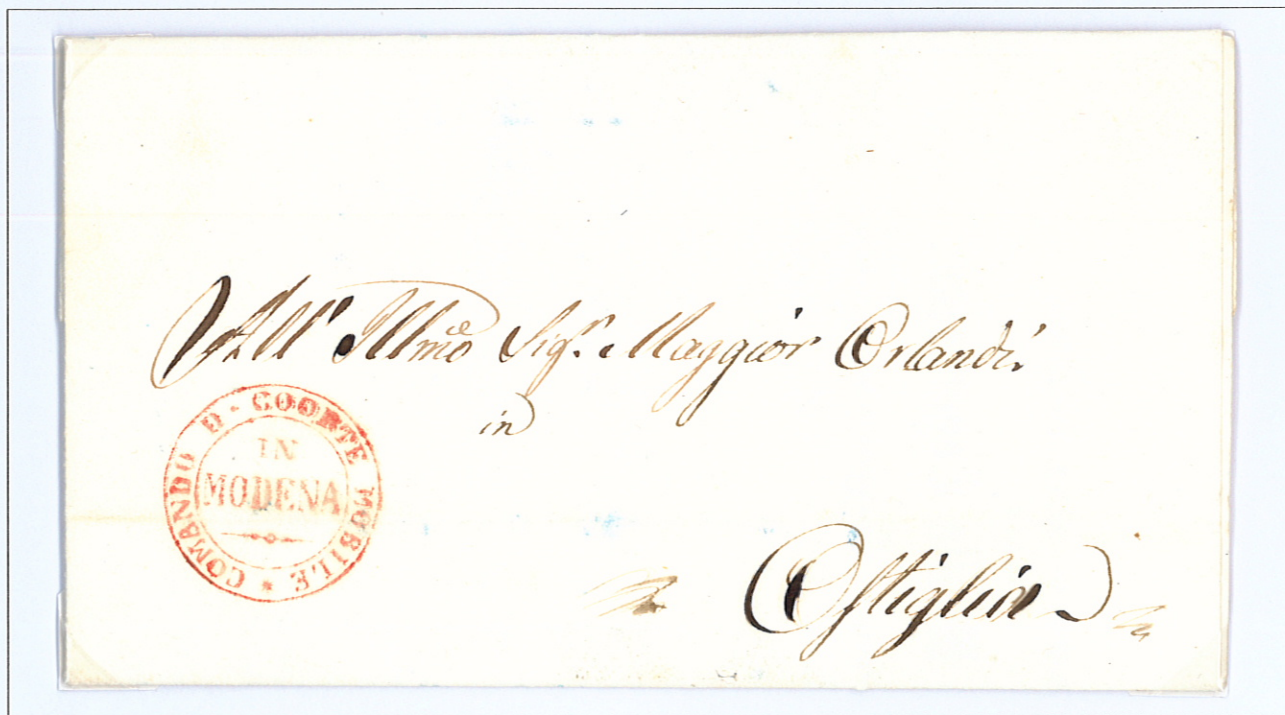 All' Illmo Sigr. Maggior Orlandi.
in
COMANDO D. COORTE MOBILE
IN
MODENA
Ostiglia